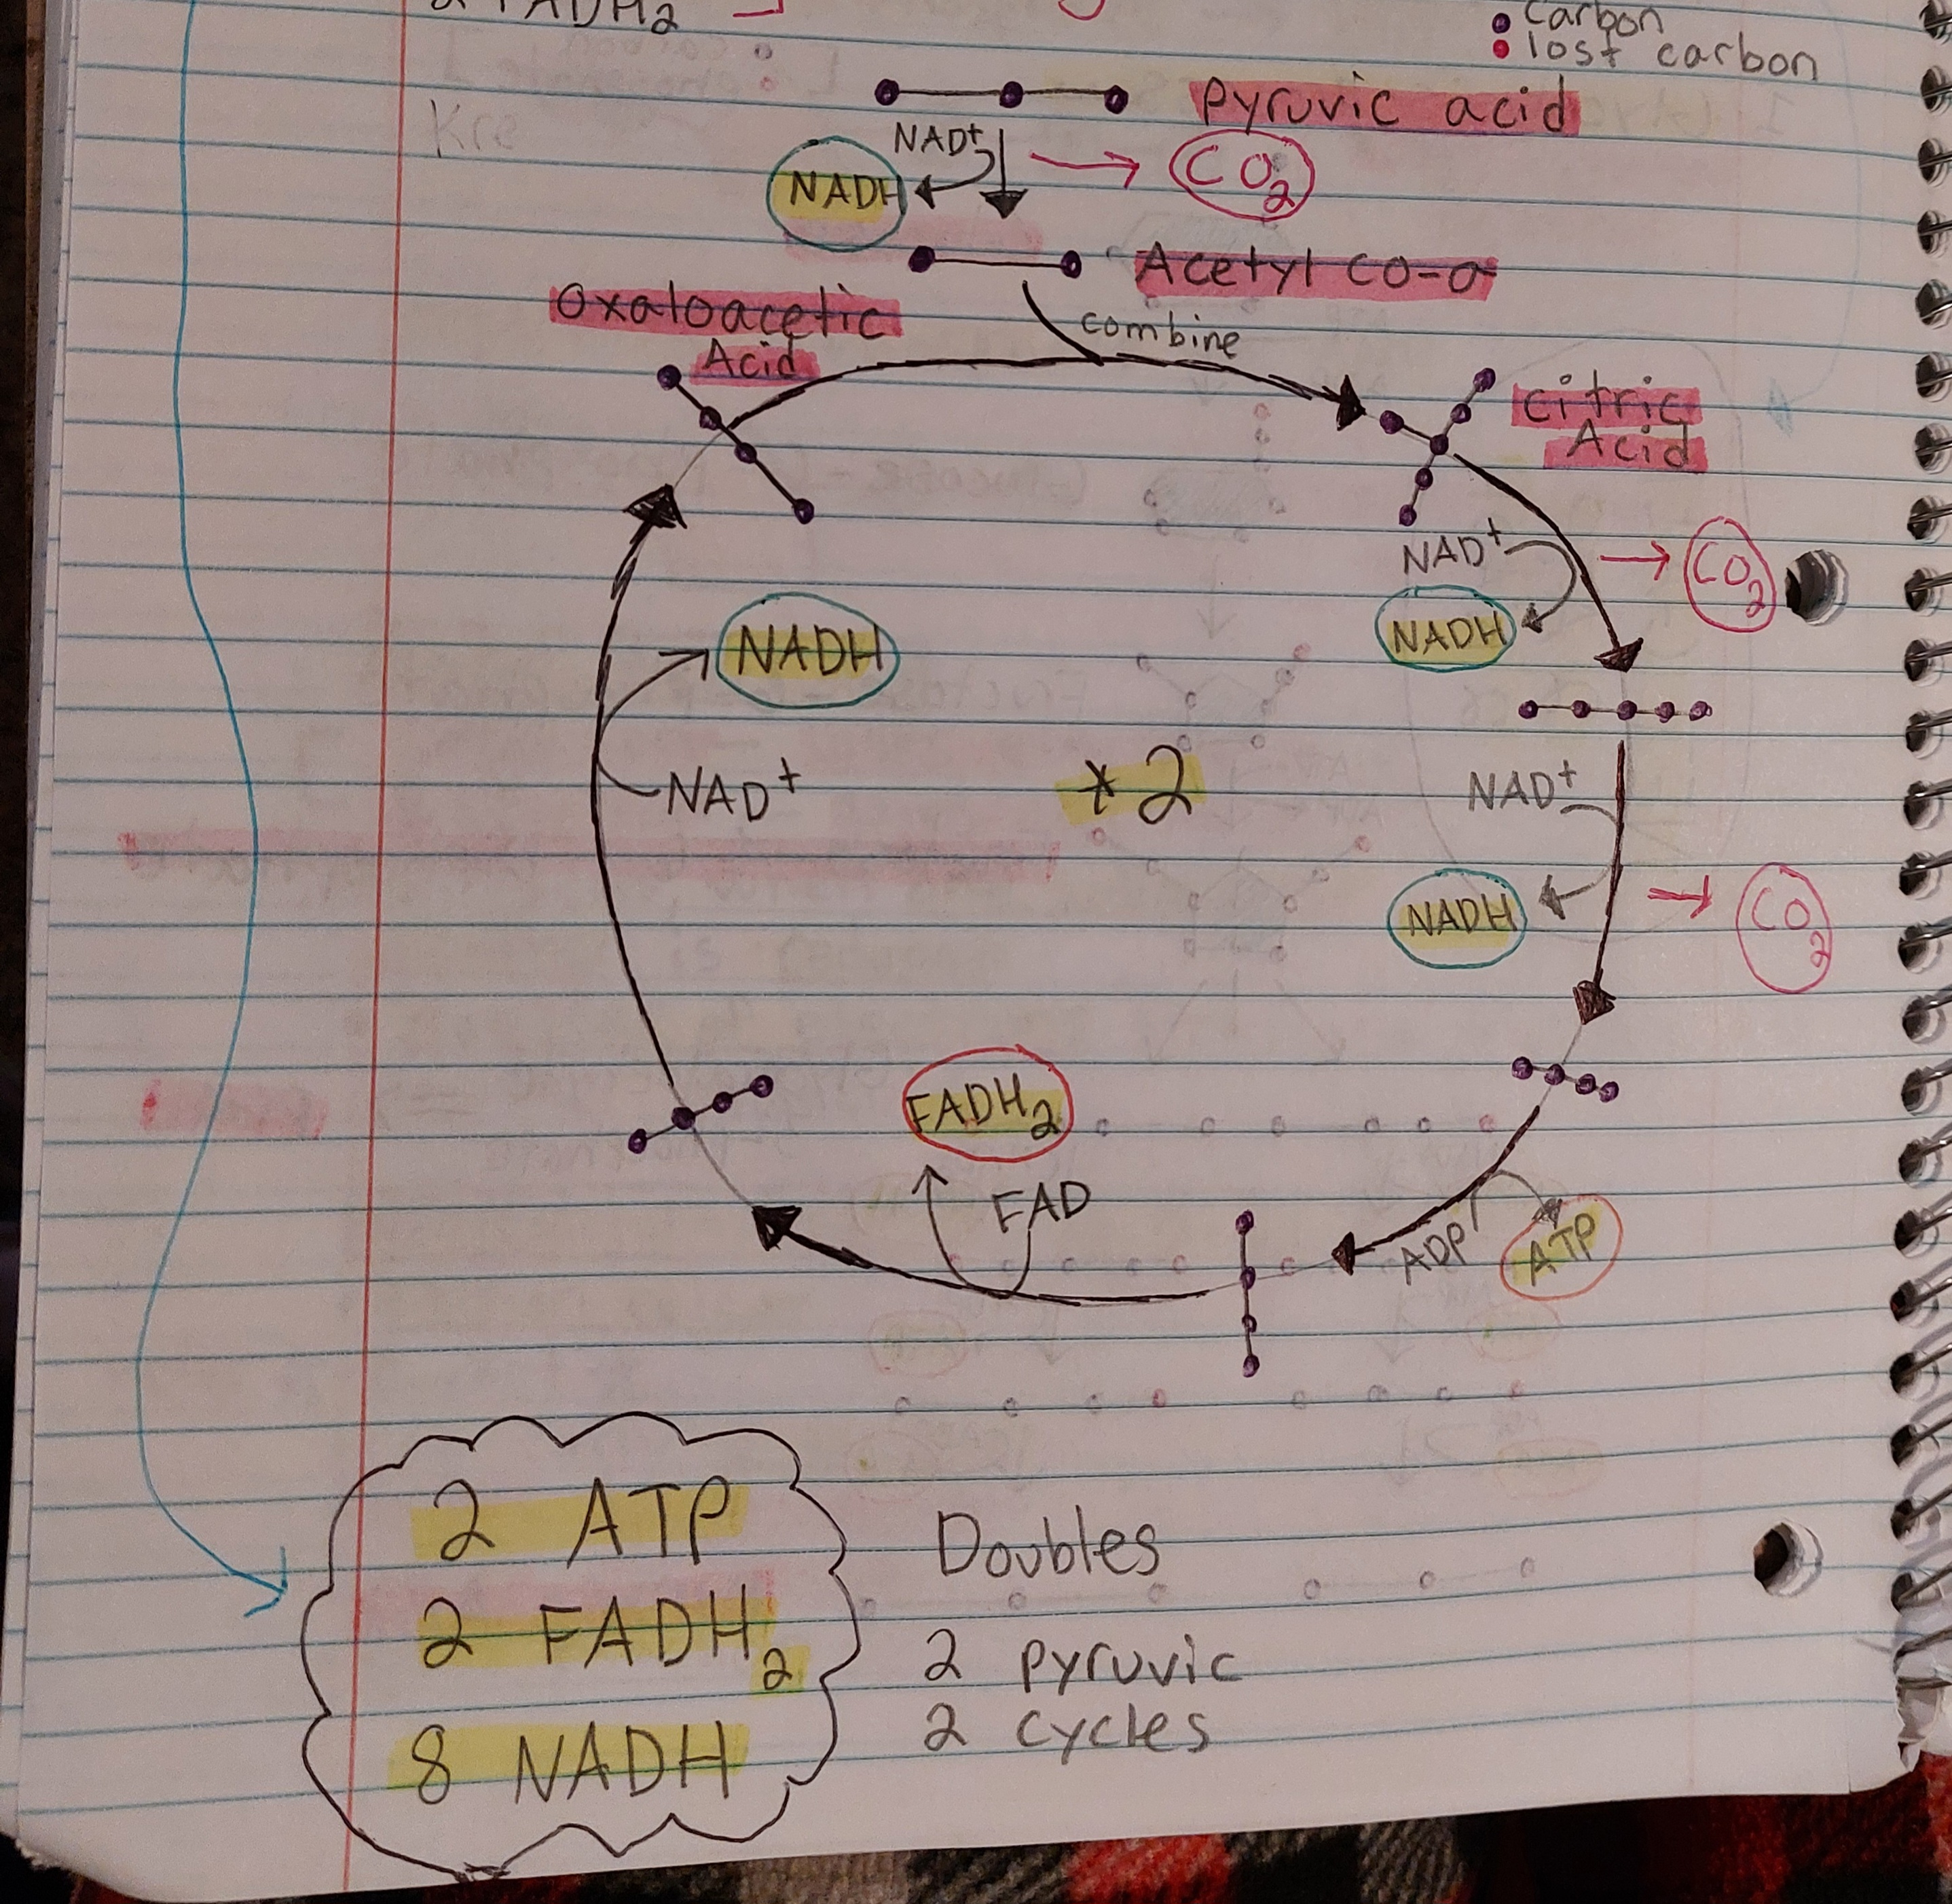 2 FADH2
carbon
lost carbon
Kre
pyruvic acid
NAD+
NADH
CO2
Acetyl co-a
oxaloacetic
Acid
combine
citric
Acid
NAD+
CO2
NADH
NADH
* 2
NAD+
NAD+
NADH
CO2
FADH2
FAD
ADP
ATP
2 ATP
2 FADH2
8 NADH
Doubles
2 pyruvic
2 cycles